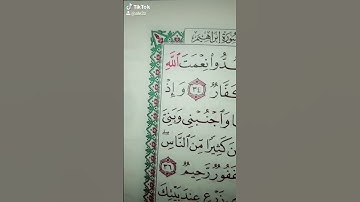 TikTok
سُورَةُ إِبْرَاهِيمَ
دُّواْ نِعْمَتَ ٱللَّهِ
كَفَّارٌ ٣٤ وَإِذْ
وَٱجْنُبْنِي وَبَنِيَّ
كَثِيرًا مِّنَ ٱلنَّاسِ
غَفُورٌ رَّحِيمٌ ٣٦
زَرْعٍ عِندَ بَيْتِكَ